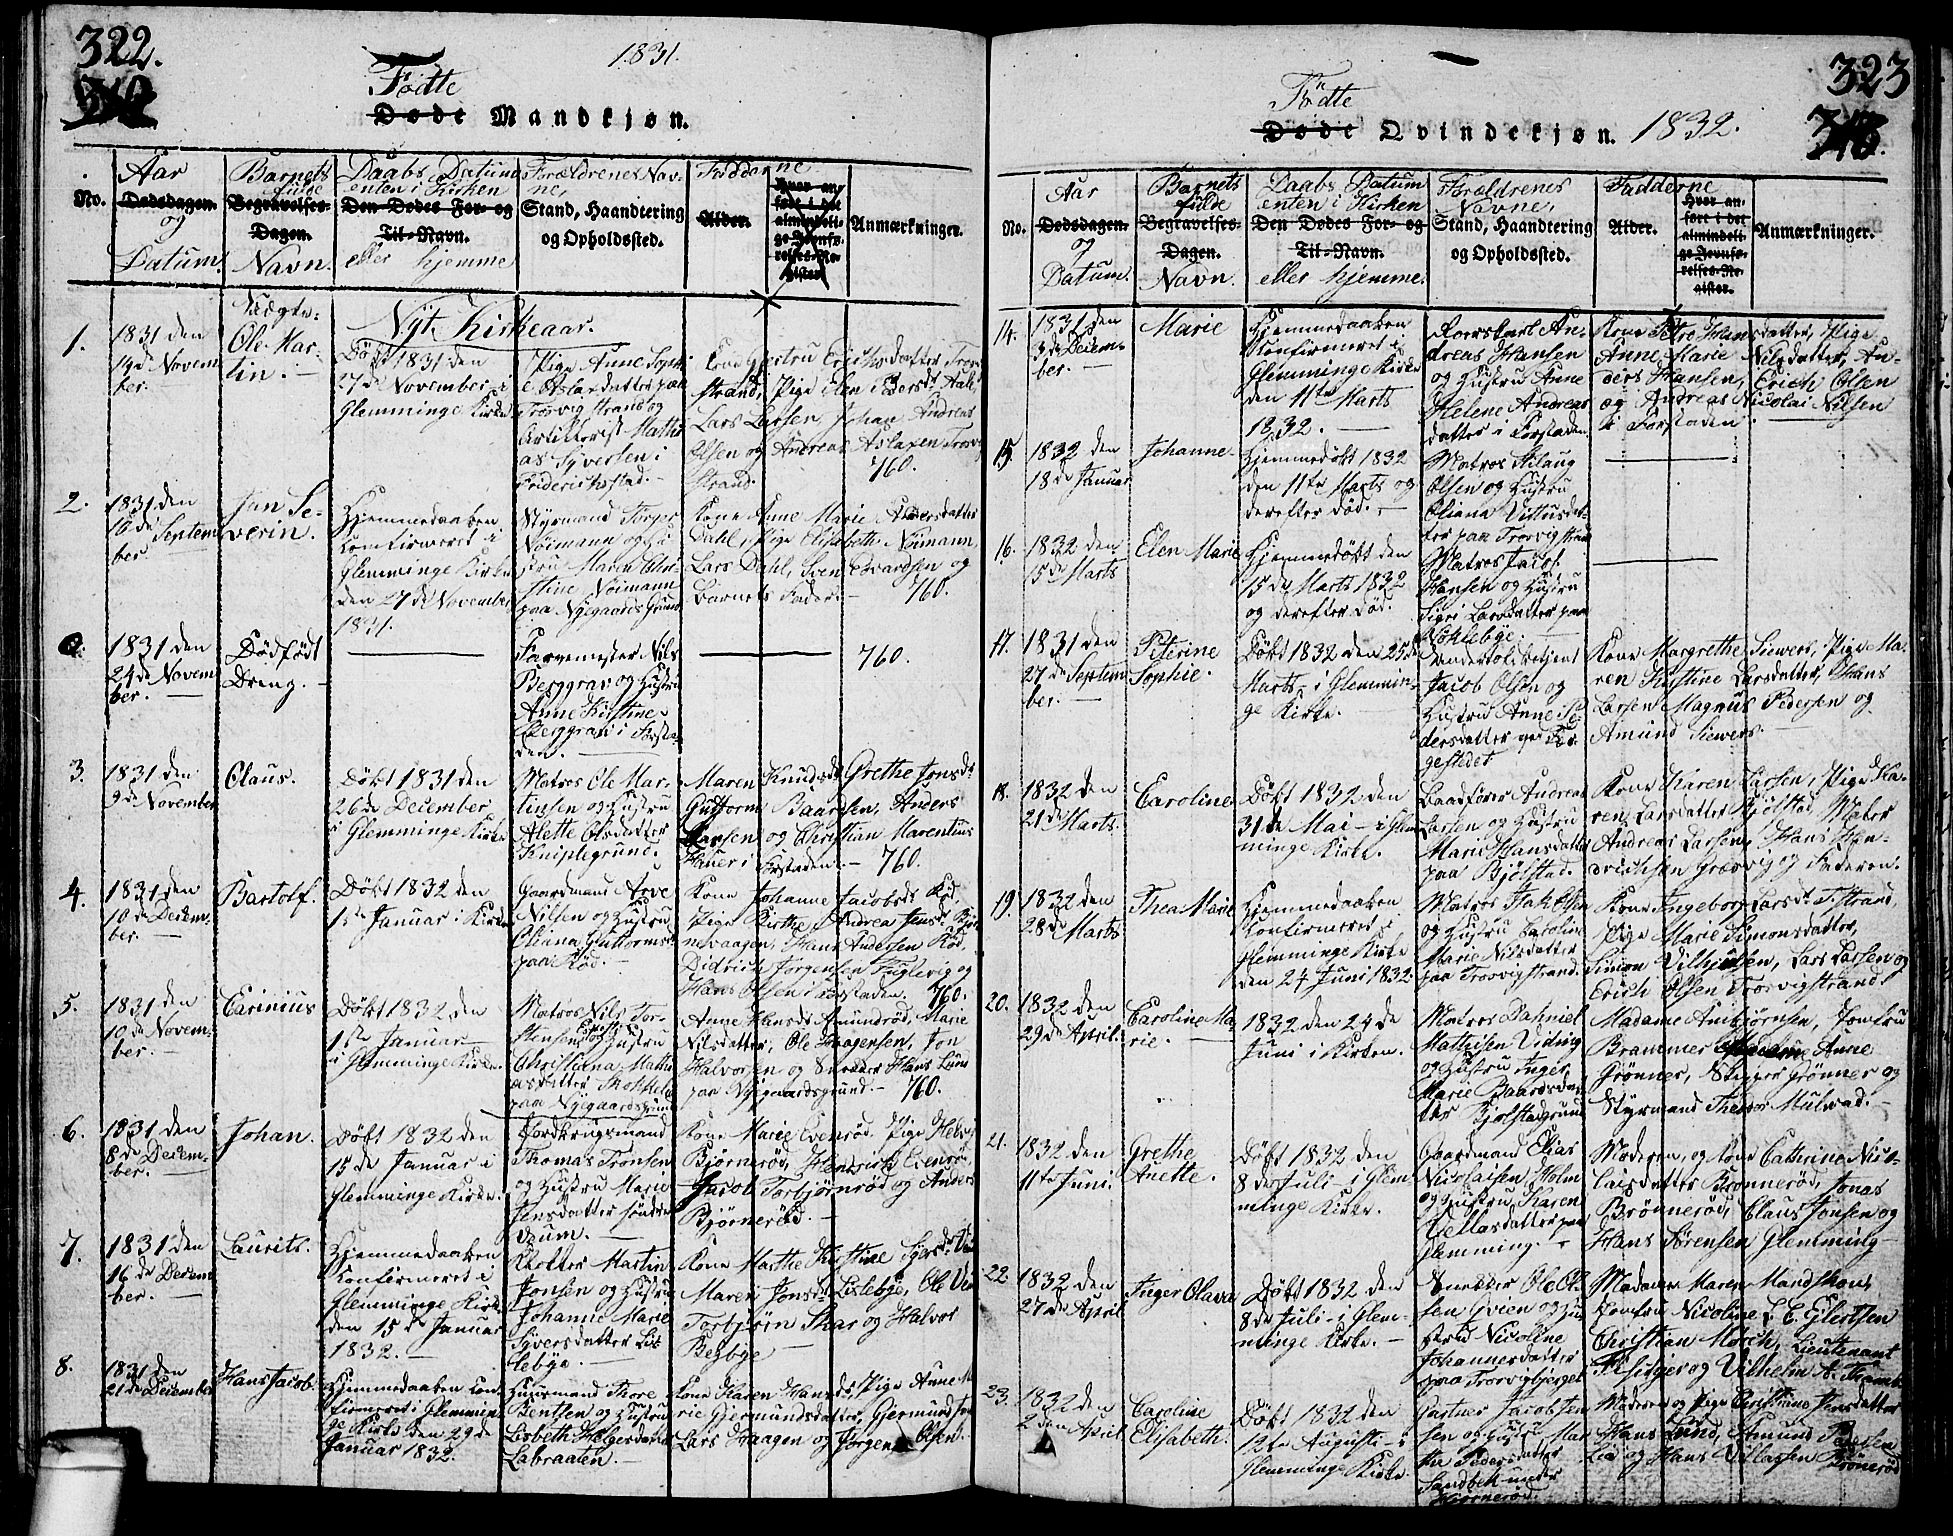 322.
1831.
Fødte
Døde Mandkjøn.
No.
Aar
Dødsdagen.
og
Datum.
Barnets
fulde
Begravelses-
Dagen.
Navn.
Daabs Datum
enten i Kirken
Den Dødes For- og
Til-Navn.
eller hjemme
Forældrenes Nav-
ne,
Stand, Haandtering
og Opholdssted.
Fadderne
Alder.
Hvor an-
ført i det
almindeli-
ge Jevnfø-
relses-Re-
gister.
Anmærkninger.
Nyt Kirkeaar.
1.
1831 den
Novem
ber.
Uægte.
Ole Mar-
tin.
Døbt 1831 den
27de November i
Glemminge Kirke
Pige Anne Sophi
e Aslaxdatter paa
Trosvigstrand og
Artillerist Mathi
as Syversen i
Friderichstad.
Erichsdatter, Trosv
strand, Pige Elen
Lars Larsen, Johan Andreas
Olsen og Andreas Aslaxen Trosvig
Strand.
760.
2.
1831 den
Septem
ber.
Jan Se-
verin.
Hjemmedaaben
confirmeret i
Glemminge Kirke
den 27de November
1831.
Styrmand Torger
Nöimann og Hu
stru Maren Chri
stine Nöimann
paa Nyegaards Grund
Kone Anne Marie Andersdatter
Dahl, Pige Elisabeth Nöimann,
Lars Dahl, Sven Edvardsen og
Barnets Fader.
760.
0.
1831 den
24de Novem
ber.
Dødfødt
Dreng.
Farvemester Nils
Berggrav og Hustru
Anne Kirstine
Berggrav i Forsta-
den.
760.
3.
1831 den
9de November
Claus.
Døbt 1831 den
26de December
i Glemminge Kirke
Matros Ole Mar-
tinsen og Hustru
Alette Olsdatter
Kniplegrund.
Maren Knudsd. Grethe Jonsdr
Guttorm Baarsen, Anders
Hansen og Christian Marentius
Hauer i Forstaden.
760.
4.
1831 den
10de Decem-
ber.
Bartolf.
Døbt 1832 den
1ste Januar i Kirke
Gaardmand Arve
Nilsen og Hustru
Oliana Guttormsd.
paa Röd.
Kone Johanne Jacobsdr Röd,
Pige Birthe Andrea Jensdr
Hans Andersen Röd,
Didrich Jörgensen Fuglevig og
Hans Olsen i Forstaden.
760.
5.
1831 den
10de Novem-
ber.
Carinius
Døbt 1832 den
1ste Januar
i Glemminge Kirke.
Matros Nils Tor-
stensen og Hustru
Christiana Mathi
asdatter
paa Nyegaardsgrund
Anne Hansdr Amundröd, Marie
Nilsdatter, Ole Haagensen, Jon
Halvorsen og Snedker Hans Lund
paa Nyegaardsgrund.
760.
6.
1831 den
8de Decem-
ber.
Johan.
Døbt 1832 den
15de Januar i
Glemminge Kirke.
Jordbrugsmand
Thomas Tronsen
og Hustru Marie
Jensdatter söndre
Kone Marie Evenröd, Pige
Björneröd, Henrich Evenröd,
Jacob Torbjörnröd og Anders
Björneröd.
7.
1831 den
16de Decem
ber.
Laurits.
Hjemmedaaben
confirmeret i
Glemminge Kirke
den 15de Januar
1832.
Martin
Jonsen og Hustru
Johanne Marie
Syversdatter Lis
lebye.
Kone Marthe Kirstine
Maren Jonsdr Lislebye, Ole
Torbjörn Skar og Halvor
Begbye
8.
1831 den
21de December
Hans Jacob.
Hjemmedaaben con-
firmeret i Glemmin
ge Kirke den 29de
Januar 1832.
Huusmand Thore
Bentsen og Hustru
Lisbeth Holgersdatter
Labraaten.
Kone Karen Hansdr, Pige Anne Ma
rie Gjermundsdatter, Gjermund
Lars Haagen og Jörgen Olsen.
323
Födte
Døde Qvindekjøn. 1832.
No.
Aar
Dødsdagen.
og
Datum.
Barnets
fulde
Begravelses-
Dagen.
Navn.
Daabs Datum
enten i Kirken
Den Dødes For- og
Til-Navn.
eller hjemme.
Forældrenes
Navne,
Stand, Haandtering
og Opholdssted.
Fadderne
Alder.
Hvor an-
ført i det
almindeli-
ge Jevnfø-
relses-Re-
gister.
Anmærkninger.
14.
1831 den
3de Decem-
ber.
Marie
Hjemmedaaben
confirmeret i
Glemminge Kirke
den 11te Marts
1832.
Andreas Hansen
og Hustru Anne
Helene Andreas
datter i Forstaden
Kone Hansdatter, Pige
Anne Marie Nilsdatter, An-
ders Hansen, Erich Olsen
og Andreas Nicolai Nilsen
i Forstaden
15.
1832 den
18de Januar
Johanne.
Hjemmedøbt 1832
den 11te Marts og
derefter død.
Matros
Olsen og Hustru
Oliana Vittusdat-
ter paa Trosvigstrand
16.
1832 den
15de Marts
Elen Marie
Hjemmedøbt den
15de Marts 1832
og derefter død.
Matros Jacob
Hansen og Hustru
Sigri Larsdatter paa
Noklebye.
17.
1831 den
27de Septem
ber.
Piterine
Sophie.
Døbt 1832 den 25de
Marts i Glemmin-
ge Kirke.
Jacob Olsen og
Hustru Anne Pe-
dersdatter paa
Kone Margrethe Siewers, Pige Ma-
ren Kirstine Larsdatter, Hans
Larsen, Magnus Pedersen og
Amund Siewers.
18.
1832 den
21de Marts.
Caroline
Døbt 1832 den
31de Mai i Glem
minge Kirke.
Baadfører Andreas
Larsen og Hustru
Marie Hansdatter
paa Bjölstad.
Kone Karen Larsen, Pige Ka-
ren Larsdatter Bjölstad, Matros
Andreas Larsen, Hans Hen-
drichsen Gressvig og Faderen.
19.
1832 den
28de Marts
Thea Marie
Hjemmedaaben
confirmeret i
Glemminge Kirke
den 24 Juni 1832
Matros Isak Olsen
og Hustru Caroline
Marie Nilsdatter
paa Trosvigstrand.
Kone Ingeborg Larsdr T. strand,
Pige Marie Simonsdatter,
Simon Vilhjelmsen, Lars Larsen og
Erich Olsen Trosvigstrand.
20.
1832 den
29de April.
Caroline Ma
rie.
1832 den 24de
Juni i Kirken.
Matros Dahniel
Mathisen Viding
og Hustru Inger
Marie Baardsdat
ter Bjölstadgrund
Madame Anbjörnsen, Jomfru
Brammer, Madame Anne
Grönner, Skipper Grönner og
Styrmand Theodor Mulvad.
21.
1832 den
11te Juni.
Grethe
Anette.
Døbt 1832 den
8de Juli i Glem
minge Kirke.
Gaardmand Elias
Nicolaisen Holm
og Hustru Karen
paa
Glemming.
Moderen, og Kone Cathrine Nico-
laisdatter Brönneröd, Jonas
Brönneröd, Claus Jonsen og
Hans Sörensen Glemming
22.
1832 den
27de April
Inger Olava
Døbt 1832 den
8de Juli i Glem-
minge Kirke.
Snedker Ole Ol-
sen Gvien og Hu
stru Nicoline
Johannesdatter
paa Trosvigbjerget
Madame Maren Mandskou
Jomfru Nicoline L. C. Eilertsen
Christian Morch, Lieutenant
og Vilhelm A.
23.
1832 den
2den April
Caroline
Elisabeth.
Døbt 1832 den
12te Augusti i
Glemminge Kirke.
Gartner Jacobsen
og Hustru Mar
the Pedersdatter
Sandbek under
Björneröd.
Moderen og Pige Christiane Jensdatter
Hans Lund, Amund
Lie og Hans Villassen Brönneröd